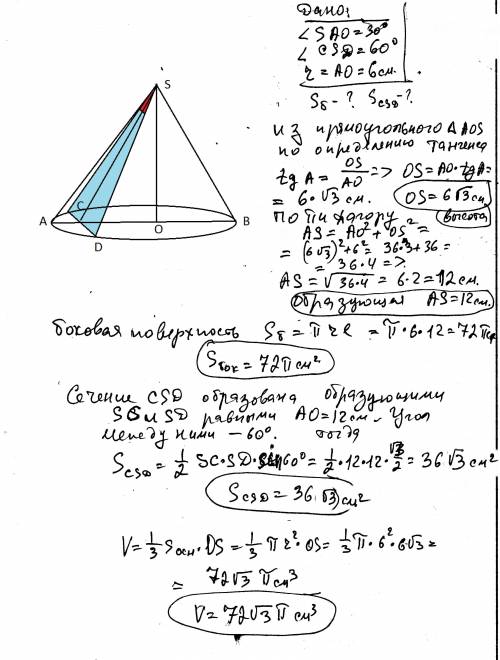 Дано:
∠ SAO = 30°
∠ CSD = 60°
r = AO = 6 см.
Sб - ? Scsd - ?
S
A
C
D
O
B
из прямоугольного △ AOS
по определению тангенса
tg A = OS/AO => OS = AO · tg A =
= 6 · √3 см. OS = 6√3 см
высота
По Пифагору
AS = AO² + OS² =
= (6√3)² + 6² = 36·3 + 36 =
= 36·4 =>
AS = √36·4 = 6·2 = 12 см.
Образующая AS = 12 см.
боковая поверхность Sб = π r l = π · 6 · 12 = 72 π
Sбок = 72 π см²
Сечение CSD образована образующими
SC и SD равными AO = 12 см. Угол
между ними — 60°. тогда
Scsd = 1/2 SC · SD · sin 60° = 1/2 · 12 · 12 · √3/2 = 36 √3 см²
Scsd = 36 √3 см²
V = 1/3 Sосн · OS = 1/3 π r² · OS = 1/3 π · 6² · 6√3 =
= 72√3 π см³
V = 72√3 π см³